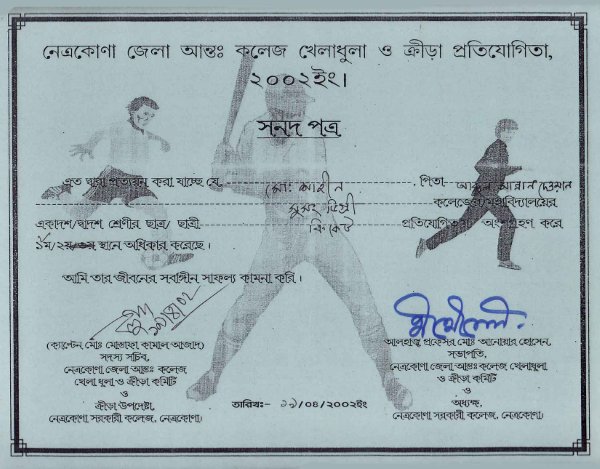 নেত্রকোণা জেলা আন্তঃ কলেজ খেলাধুলা ও ক্রীড়া প্রতিযোগিতা,
২০০২ইং।
সনদ পত্র
এত দ্বারা প্রত্যয়ন করা যাচ্ছে যে, মোঃ শাহীন, পিতা আব্দুল মান্নান দেওয়ান
সুসং ডিগ্রী কলেজ/উচ্চ মহাবিদ্যালয়ের
একাদশ/দ্বাদশ শ্রেণীর ছাত্র/ ছাত্রী ক্রিকেট প্রতিযোগিতায় অংশগ্রহণ করে
১ম/২য়/৩য় স্থানে অধিকার করেছে।
আমি তার জীবনের সর্বাঙ্গীন সাফল্য কামনা করি।
(ক্যাপ্টেন মোঃ মোস্তাফা কামাল আজাদ)
সদস্য সচিব,
নেত্রকোণা জেলা আন্তঃ কলেজ
খেলাধুলা ও ক্রীড়া কমিটি
ও
ক্রীড়া উপদেষ্টা,
নেত্রকোণা সরকারী কলেজ, নেত্রকোণা)
তারিখঃ- ১৯/০৪/২০০২ইং
আলহাজ্ব প্রফেসর মোঃ আনোয়ার হোসেন,
সভাপতি,
নেত্রকোণা জেলা আন্তঃ কলেজ খেলাধুলা
ও ক্রীড়া কমিটি
ও
অধ্যক্ষ,
নেত্রকোণা সরকারী কলেজ, নেত্রকোণা)